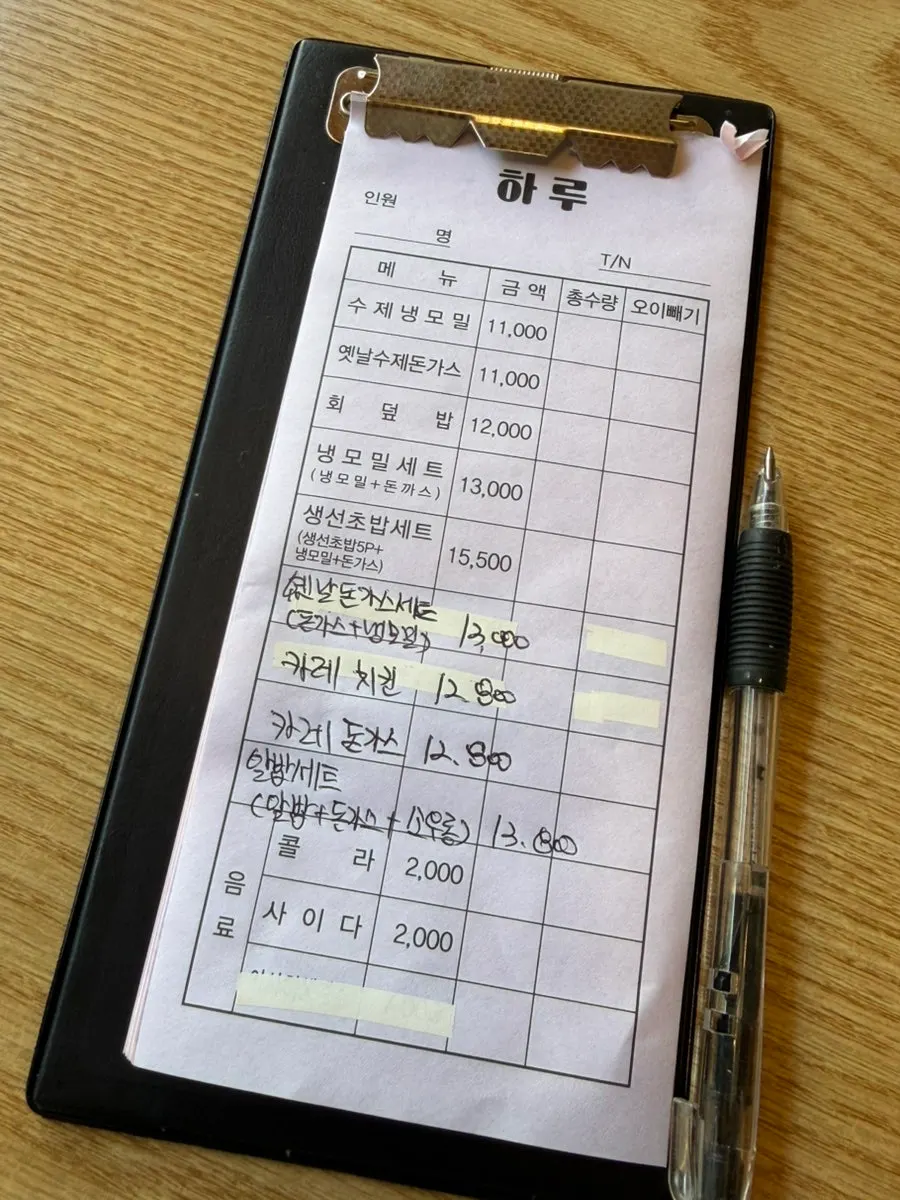 하루
인원
명
T/N
메 뉴 금액 총수량 오이빼기
수제냉모밀 11,000
옛날수제돈가스 11,000
회 덮 밥 12,000
냉모밀세트
(냉모밀+돈까스) 13,000
생선초밥세트
(생선초밥5P+
냉모밀+돈가스) 15,500
옛날돈가스세트
(돈가스+냉모밀) 13,000
카레 치킨 12.800
카레 돈가스 12.800
알밥세트
(알밥+돈가스+소우동) 13.800
음료
콜 라 2,000
사이다 2,000